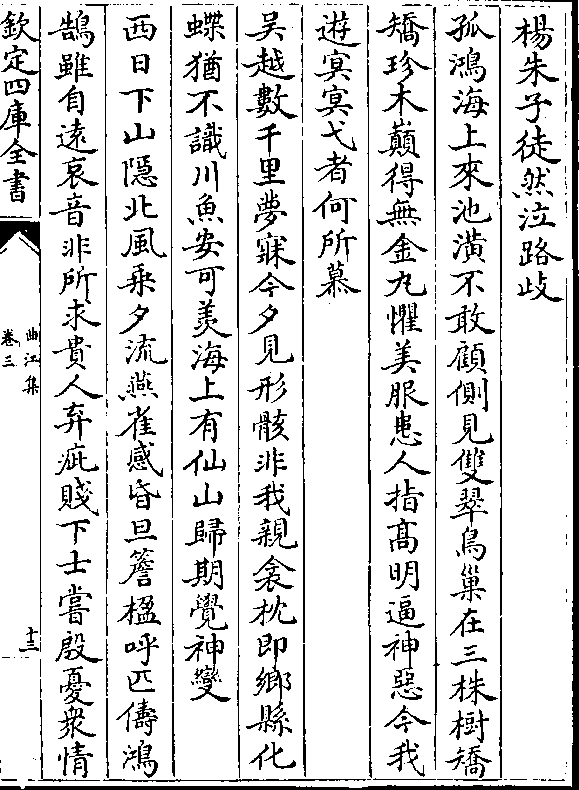 楊朱子徒然泣路歧
孤鴻海上來池潢不敢顧側見雙翠鳥巢在三株樹矯
矯珍木巔得無金丸懼美服患人指高明逼神惡今我
遊冥冥弋者何所慕
吳越數千里夢寐今夕見形骸非我親衾枕即鄉縣化
蝶猶不識川魚安可羨海上有仙山歸期覺神變
西日下山隱北風乘夕流燕雀感昏旦簷楹呼匹儔鴻
鵠雖自遠哀音非所求貴人弃疵賤下士嘗殷憂衆情
欽定四庫全書
曲江集
卷三
十三